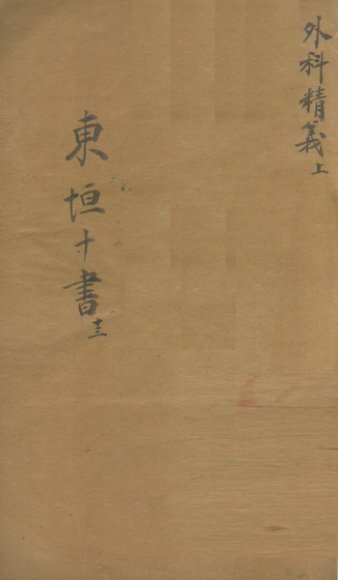 外科精義上
東垣十書